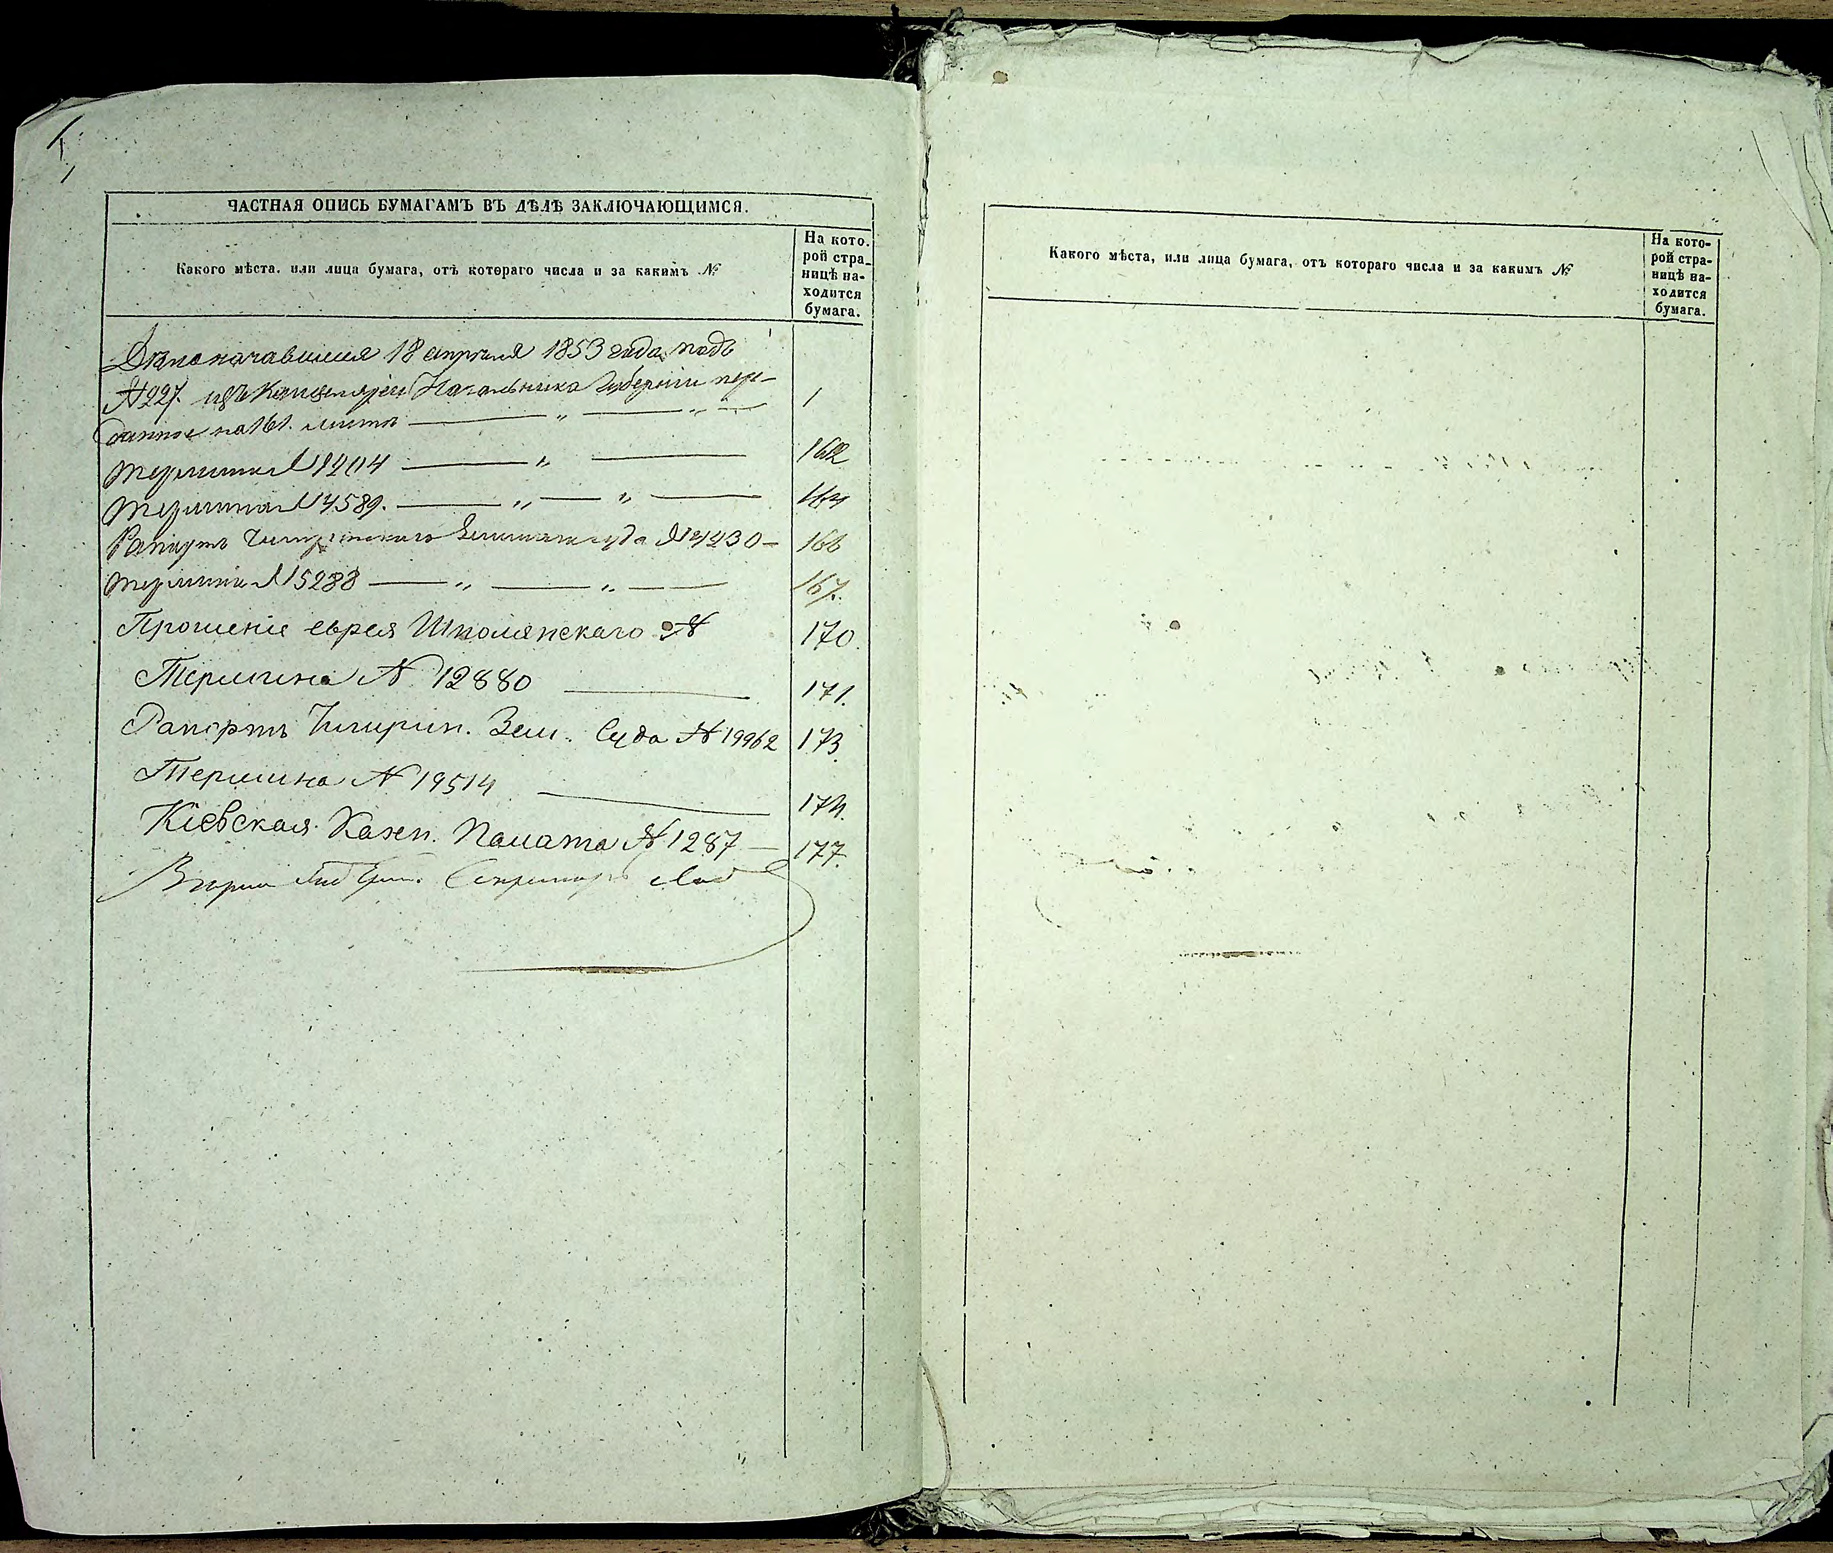 ЧАСТНАЯ ОПИСЬ БУМАГАМЪ ВЪ ДѢЛѢ ЗАКЛЮЧАЮЩИМСЯ.
Какого мѣста, или лица бумага, отъ котораго числа и за какимъ №
На кото-
рой стра-
ницѣ на-
ходится
бумага.
Дѣло начавшееся 18 апрѣля 1853 года подъ
№ 227. изъ Канцеляріи Начальника Губерніи пере-
данное на 161. листѣ — „ — „ — 1
Термина № 1204 — „ — 162
Термина № 4589. — „ — „ — 164
Рапортъ Чигиринскаго Земскаго суда № 4430 — 166
Термина № 5288 — „ — „ — 167.
Прошеніе еврея Шполянскаго № 170.
Термина № 12880 — 171.
Рапортъ Чигирин. Зем. Суда № 19962 173.
Термина № 19514 — 174.
Кіевская Казен. Палата № 1287 — 177.
Секретарь
Какого мѣста, или лица бумага, отъ котораго числа и за какимъ №
На кото-
рой стра-
ницѣ на-
ходится
бумага.